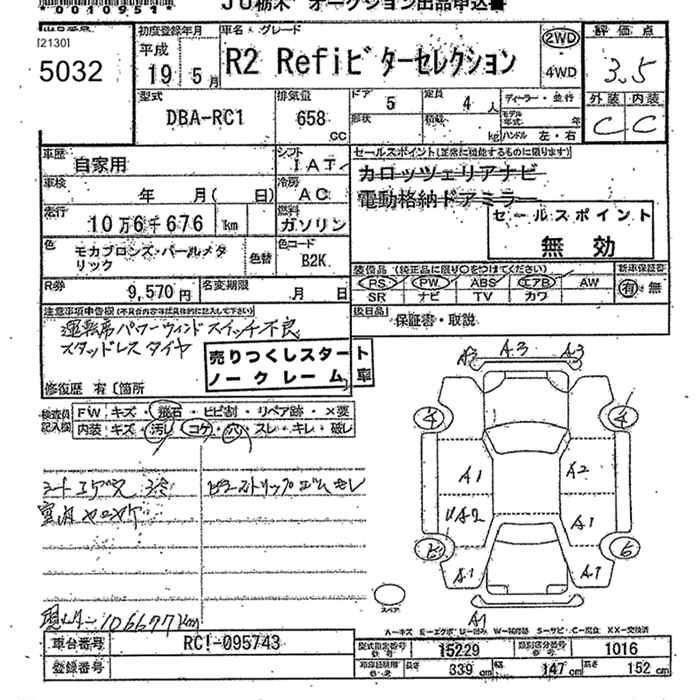 0010951
JU栃木 オークション出品申込書
[2130]
5032
初度登録年月
平成
19 年 5 月
車名・グレード
R2 Refiビターセレクション
2WD
4WD
評価点
3.5
外装 内装
C C
型式
DBA-RC1
排気量
658 cc
ドア 5
定員 4 人
形状
積載 kg
ディーラー・並行
モデル年式 年
ハンドル 左・右
車歴
自家用
シフト
IAT
セールスポイント(正常に機能するものに限ります)
カロッツェリアナビ
電動格納ドアミラー
セールスポイント
無効
車検
年 月( 日)
冷房
AC
走行
10万6千676 km
燃料
ガソリン
色
モカブロンズ・パールメタリック
色替
色コード
B2K
装備品(純正品に限り○をつけてください)
PS PW ABS エアB AW
SR ナビ TV カワ
新車保証書
有・無
R券
9,570円
名変期限
月 日
後日品
保証書・取説
注意事項申告欄(不具合内容は具体的に記入して下さい)
運転席パワーウィンドスイッチ不良
スタッドレスタイヤ
売りつくしスタート
ノークレーム 車
修復歴 有 〔箇所
検査員記入欄
FW キズ・飛石・ヒビ割・リペア跡・×要
内装 キズ・汚レ・コゲ・穴・スレ・キレ・破レ
A2 A3 A3
4 4
A1 A2
UA2 A1
6
A1 A1
A1
スペア
A-キズ E-エクボ U-凹み W-補修跡 S-サビ C-腐食 XX-交換済
車台番号
RC1-095743
登録番号
型式指定番号
15229
類別区分番号
1016
長さ
339 cm
幅
147 cm
高さ
152 cm